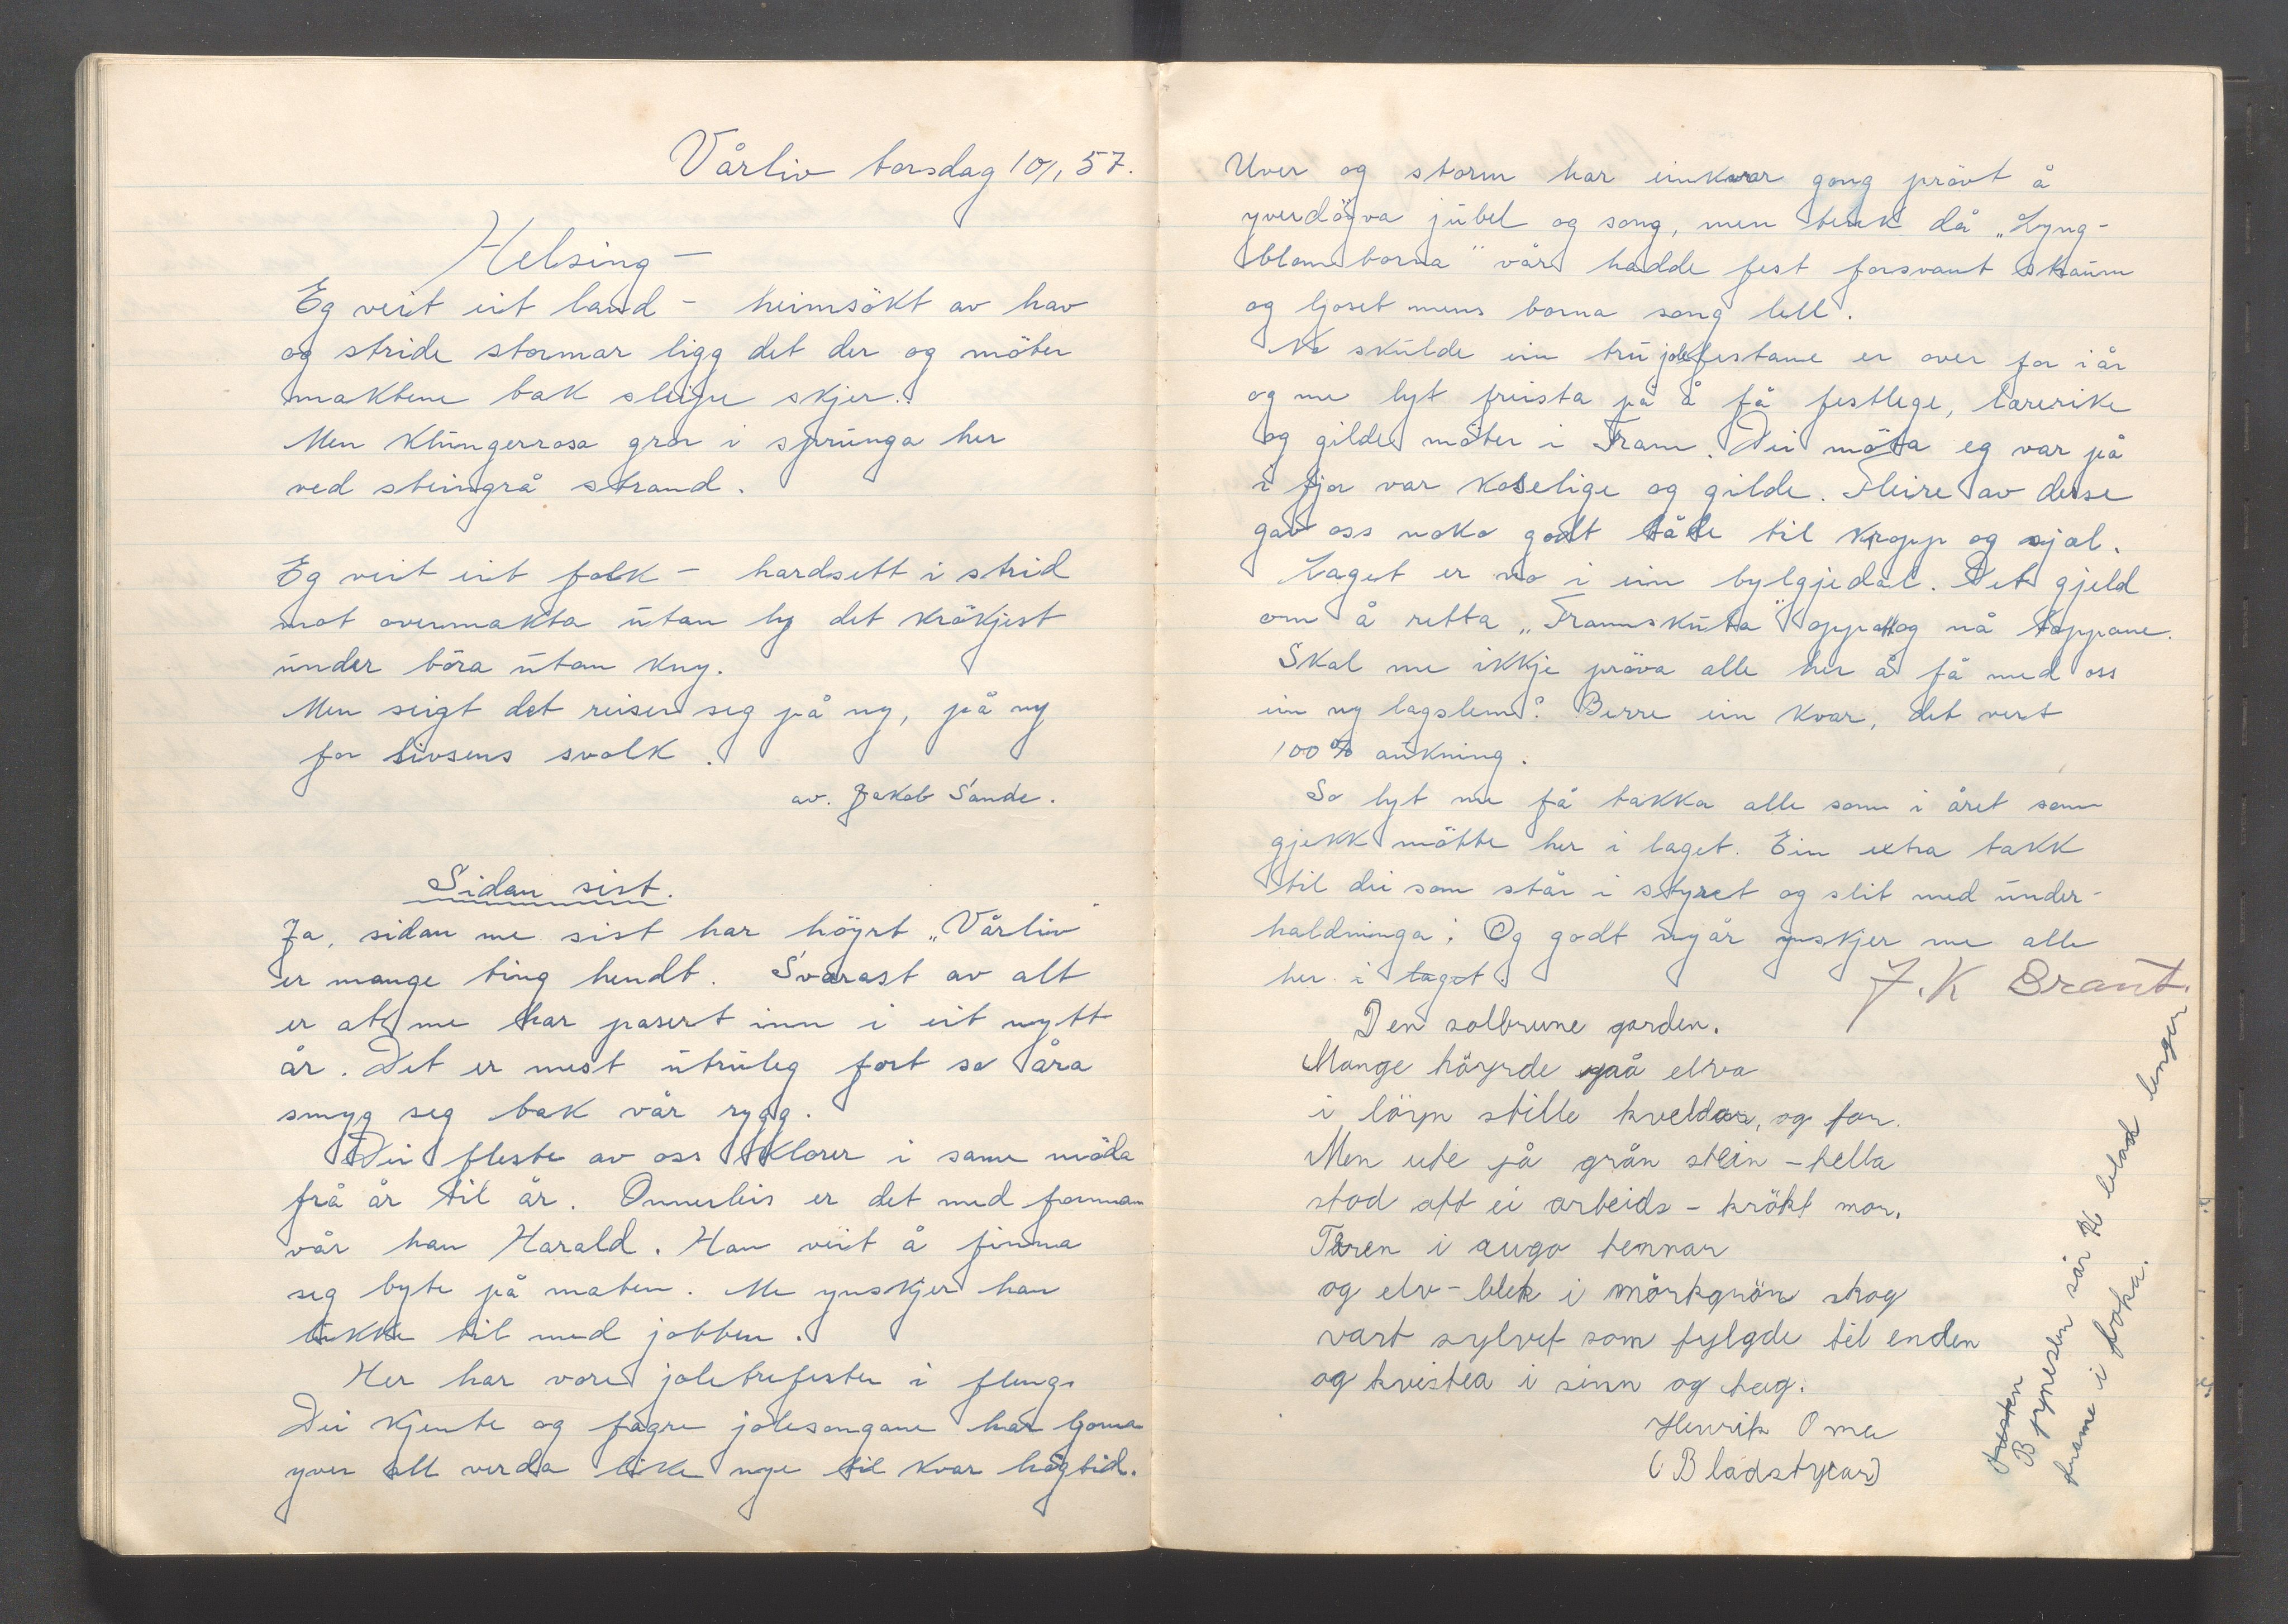 Vårliv torsdag 10/1, 57.
Helsing –
Eg veit eit land – heimsökt av hav
og stride stormar ligg det der og möter
maktene bak sleipe skjer.
Men Klungerrosa gror i sprunga her
ved steingrå strand.
Eg veit eit folk – hardsett i strid
mot overmakta utan ly det krökjest
under böra utan kny.
Men seigt det reiser seg på ny, på ny
for livsens svolk.
av. Jakob Sande.
Sidan sist.
Ja, sidan me sist har höyrt „Vårliv"
er mange ting hendt. Svarast av alt
er at me har pasert inn i eit nytt
år. Det er mest utruleg fort so åra
smyg seg bak vår rygg.
Dei fleste av oss Klorer i same möda
frå år til år. Onnerleis er det med forman
vår han Harald. Han veit å finna
seg byte på maten. Me ynskjer han
lukke til med jobben.
Her har vore joletrefester i fleng.
Dei kjente og fagre jolesongane har ljoma
yver all verda like nye til kvar högtid.
Uver og storm har einkvar gong prövt å
yverdöyva jubel og song, men tenk då „Lyng-
blomborna" vår hadde fest forsvant straum
og ljoset mens borna song lell.
No skulde ein tru jolefestane er over for i år
og me lyt freista på å få festlege, lærerike
og gilde möter i Fram. Dei möta eg var på
i fjor var koselige og gilde. Fleire av desse
gav oss noko godt både til kropp og sjæl.
Laget er no i ein bylgjedal. Det gjeld
om å retta „Framskuta" opp att og nå toppane.
Skal me ikkje pröva alle her å få med oss
ein ny lagslem? Berre ein kvar, det vert
100% aukning.
So lyt me få takka alle som i året som
gjekk mötte her i laget. Ein extra takk
til dei som står i styret og slit med under-
haldninga. Og godt nyår ynskjer me alle
her i laget
J. K Braut.
Den solbrune garden.
Mange höyrde på elva
i löyn stille kveldar, og for.
Men ute på grån stein-hella
stod att ei arbeids-krökt mor.
Tåren i augo tennar
og elv-blek i mörkgrön skog
vart sylvet som fylgde til enden
og kvistea i sinn og haug.
Henrik Oma
(Bladstyrar)
Posten
Brynesen sår K blad lenger
frame i boka.